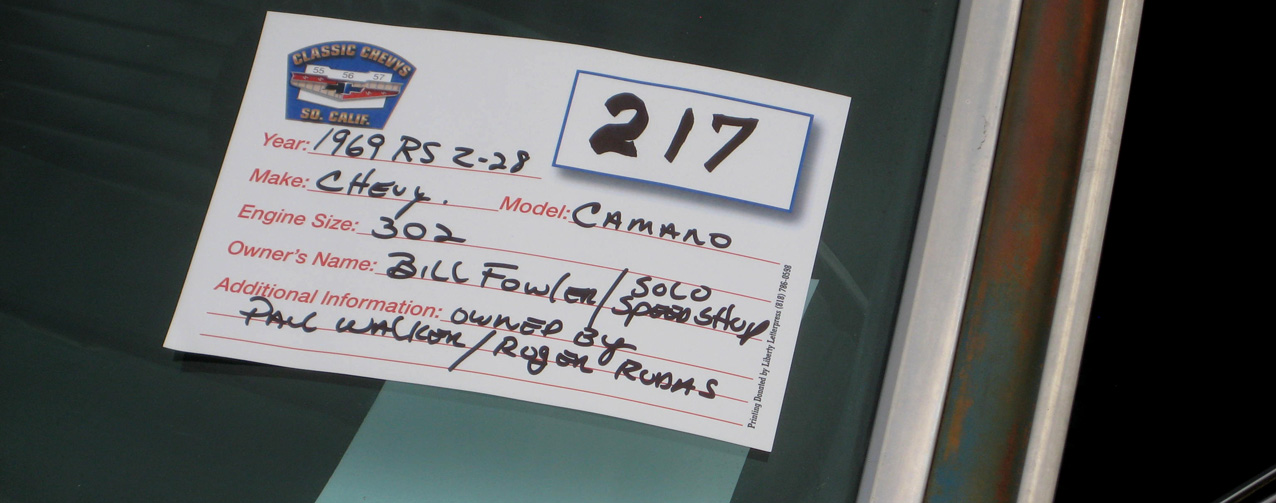 CLASSIC CHEVYS
55 56 57
SO. CALIF.
217
Year: 1969 RS Z-28
Make: CHEVY. Model: CAMARO
Engine Size: 302
Owner's Name: BILL FOWLER/SOLO SPEEDSHOP
Additional Information: OWNED BY
PAUL WALKER/ROGER RODAS
Printing Donated by Liberty Letterpress (818) 786-0598